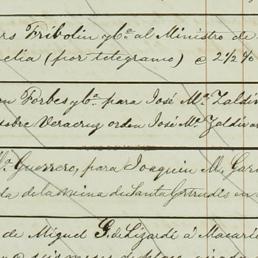 rs Fribolin y Cª al Ministro de
elia (por telegrama) @ 2½ %
n Forbes y Cª para José Mª Zaldív
sobre Veracruz orden José Mª Zaldívar
ª Guerrero, para Joaquin M. Gar
da de la mina de Santa Gertrudis en
de Miguel G. de Lizardi á Macari
@ seis meses de plazo